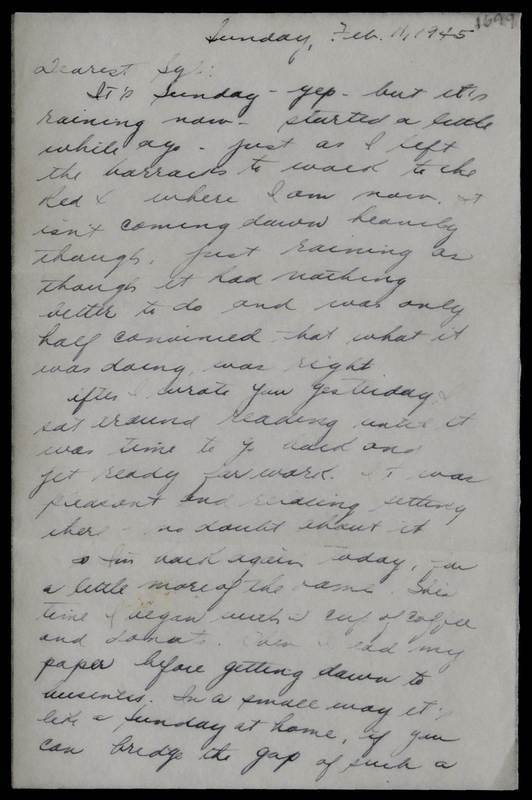 1699
Sunday, Feb. 11, 1945
Dearest Syl:
It's Sunday - yep - but it's
raining now - started a little
while ago - just as I left
the barracks to walk to the
Red X where I am now. It
isn't coming down heavily
though, just raining as
though it had nothing
better to do and was only
half convinced that what it
was doing, was right
After I wrote you yesterday I
sat around reading until it
was time to go back and
get ready for work. It was
pleasant and relaxing sitting
there - no doubt about it
So I'm back again today, for
a little more of the same. This
time I began with a cup of coffee
and donuts. Then I read my
paper before getting down to
business. In a small way it's
like a Sunday at home, if you
can bridge the gap of such a